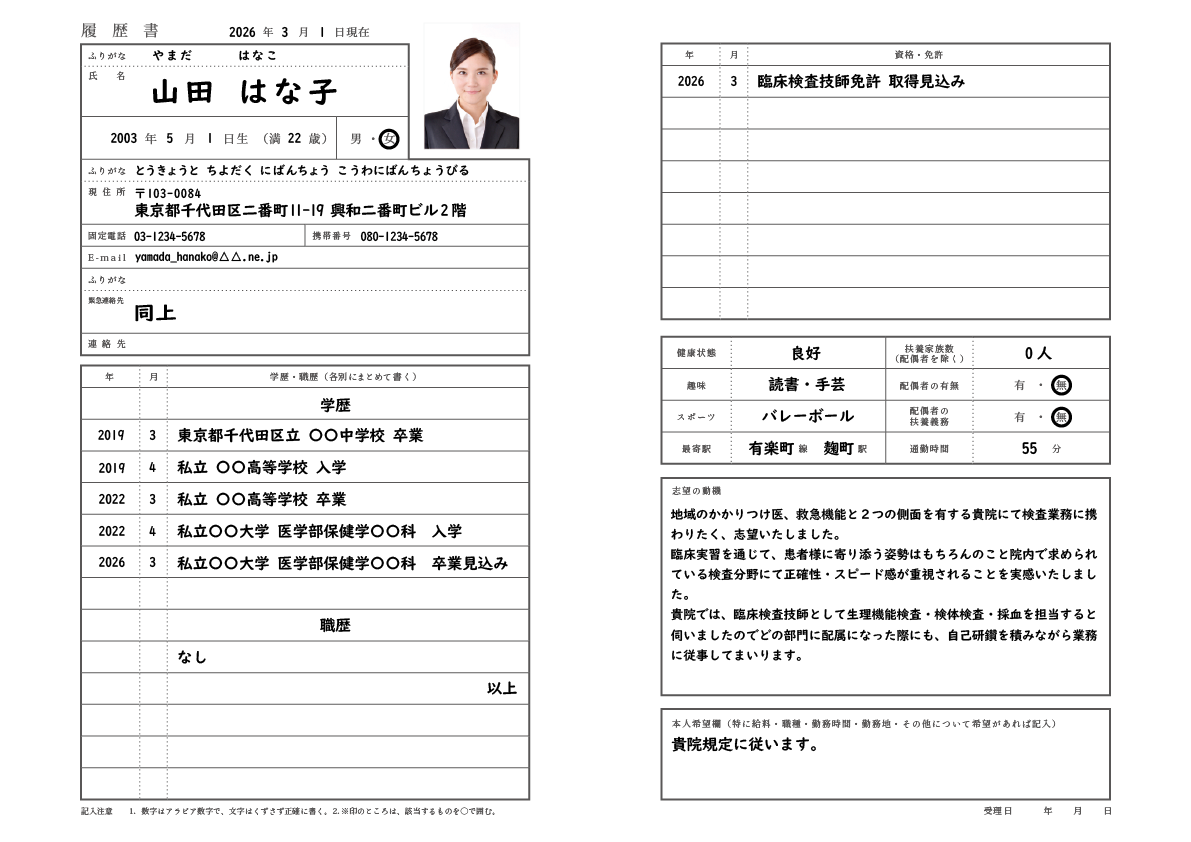 履歴書 2026 年 3 月 1 日現在
ふりがな やまだ はなこ
氏名 山田 はな子
2003 年 5 月 1 日生 (満 22 歳) 男・女
ふりがな とうきょうと ちよだく にばんちょう こうわにばんちょうびる
現住所 〒103-0084
東京都千代田区二番町11-19 興和二番町ビル2階
固定電話 03-1234-5678 携帯番号 080-1234-5678
E-mail yamada_hanako@△△.ne.jp
ふりがな
緊急連絡先 同上
連絡先
年 月 学歴・職歴（各別にまとめて書く）
学歴
2019 3 東京都千代田区立 〇〇中学校 卒業
2019 4 私立 〇〇高等学校 入学
2022 3 私立 〇〇高等学校 卒業
2022 4 私立〇〇大学 医学部保健学〇〇科 入学
2026 3 私立〇〇大学 医学部保健学〇〇科 卒業見込み
職歴
なし
以上
記入注意 1. 数字はアラビア数字で、文字はくずさず正確に書く。2.※印のところは、該当するものを〇で囲む。
年 月 資格・免許
2026 3 臨床検査技師免許 取得見込み
健康状態 良好 扶養家族数（配偶者を除く） 0 人
趣味 読書・手芸 配偶者の有無 有・無
スポーツ バレーボール 配偶者の扶養義務 有・無
最寄駅 有楽町 線 麹町 駅 通勤時間 55 分
志望の動機
地域のかかりつけ医、救急機能と２つの側面を有する貴院にて検査業務に携
わりたく、志望いたしました。
臨床実習を通じて、患者様に寄り添う姿勢はもちろんのこと院内で求められ
ている検査分野にて正確性・スピード感が重視されることを実感いたしまし
た。
貴院では、臨床検査技師として生理機能検査・検体検査・採血を担当すると
伺いましたのでどの部門に配属になった際にも、自己研鑽を積みながら業務
に従事してまいります。
本人希望欄（特に給料・職種・勤務時間・勤務地・その他について希望があれば記入）
貴院規定に従います。
受理日 年 月 日